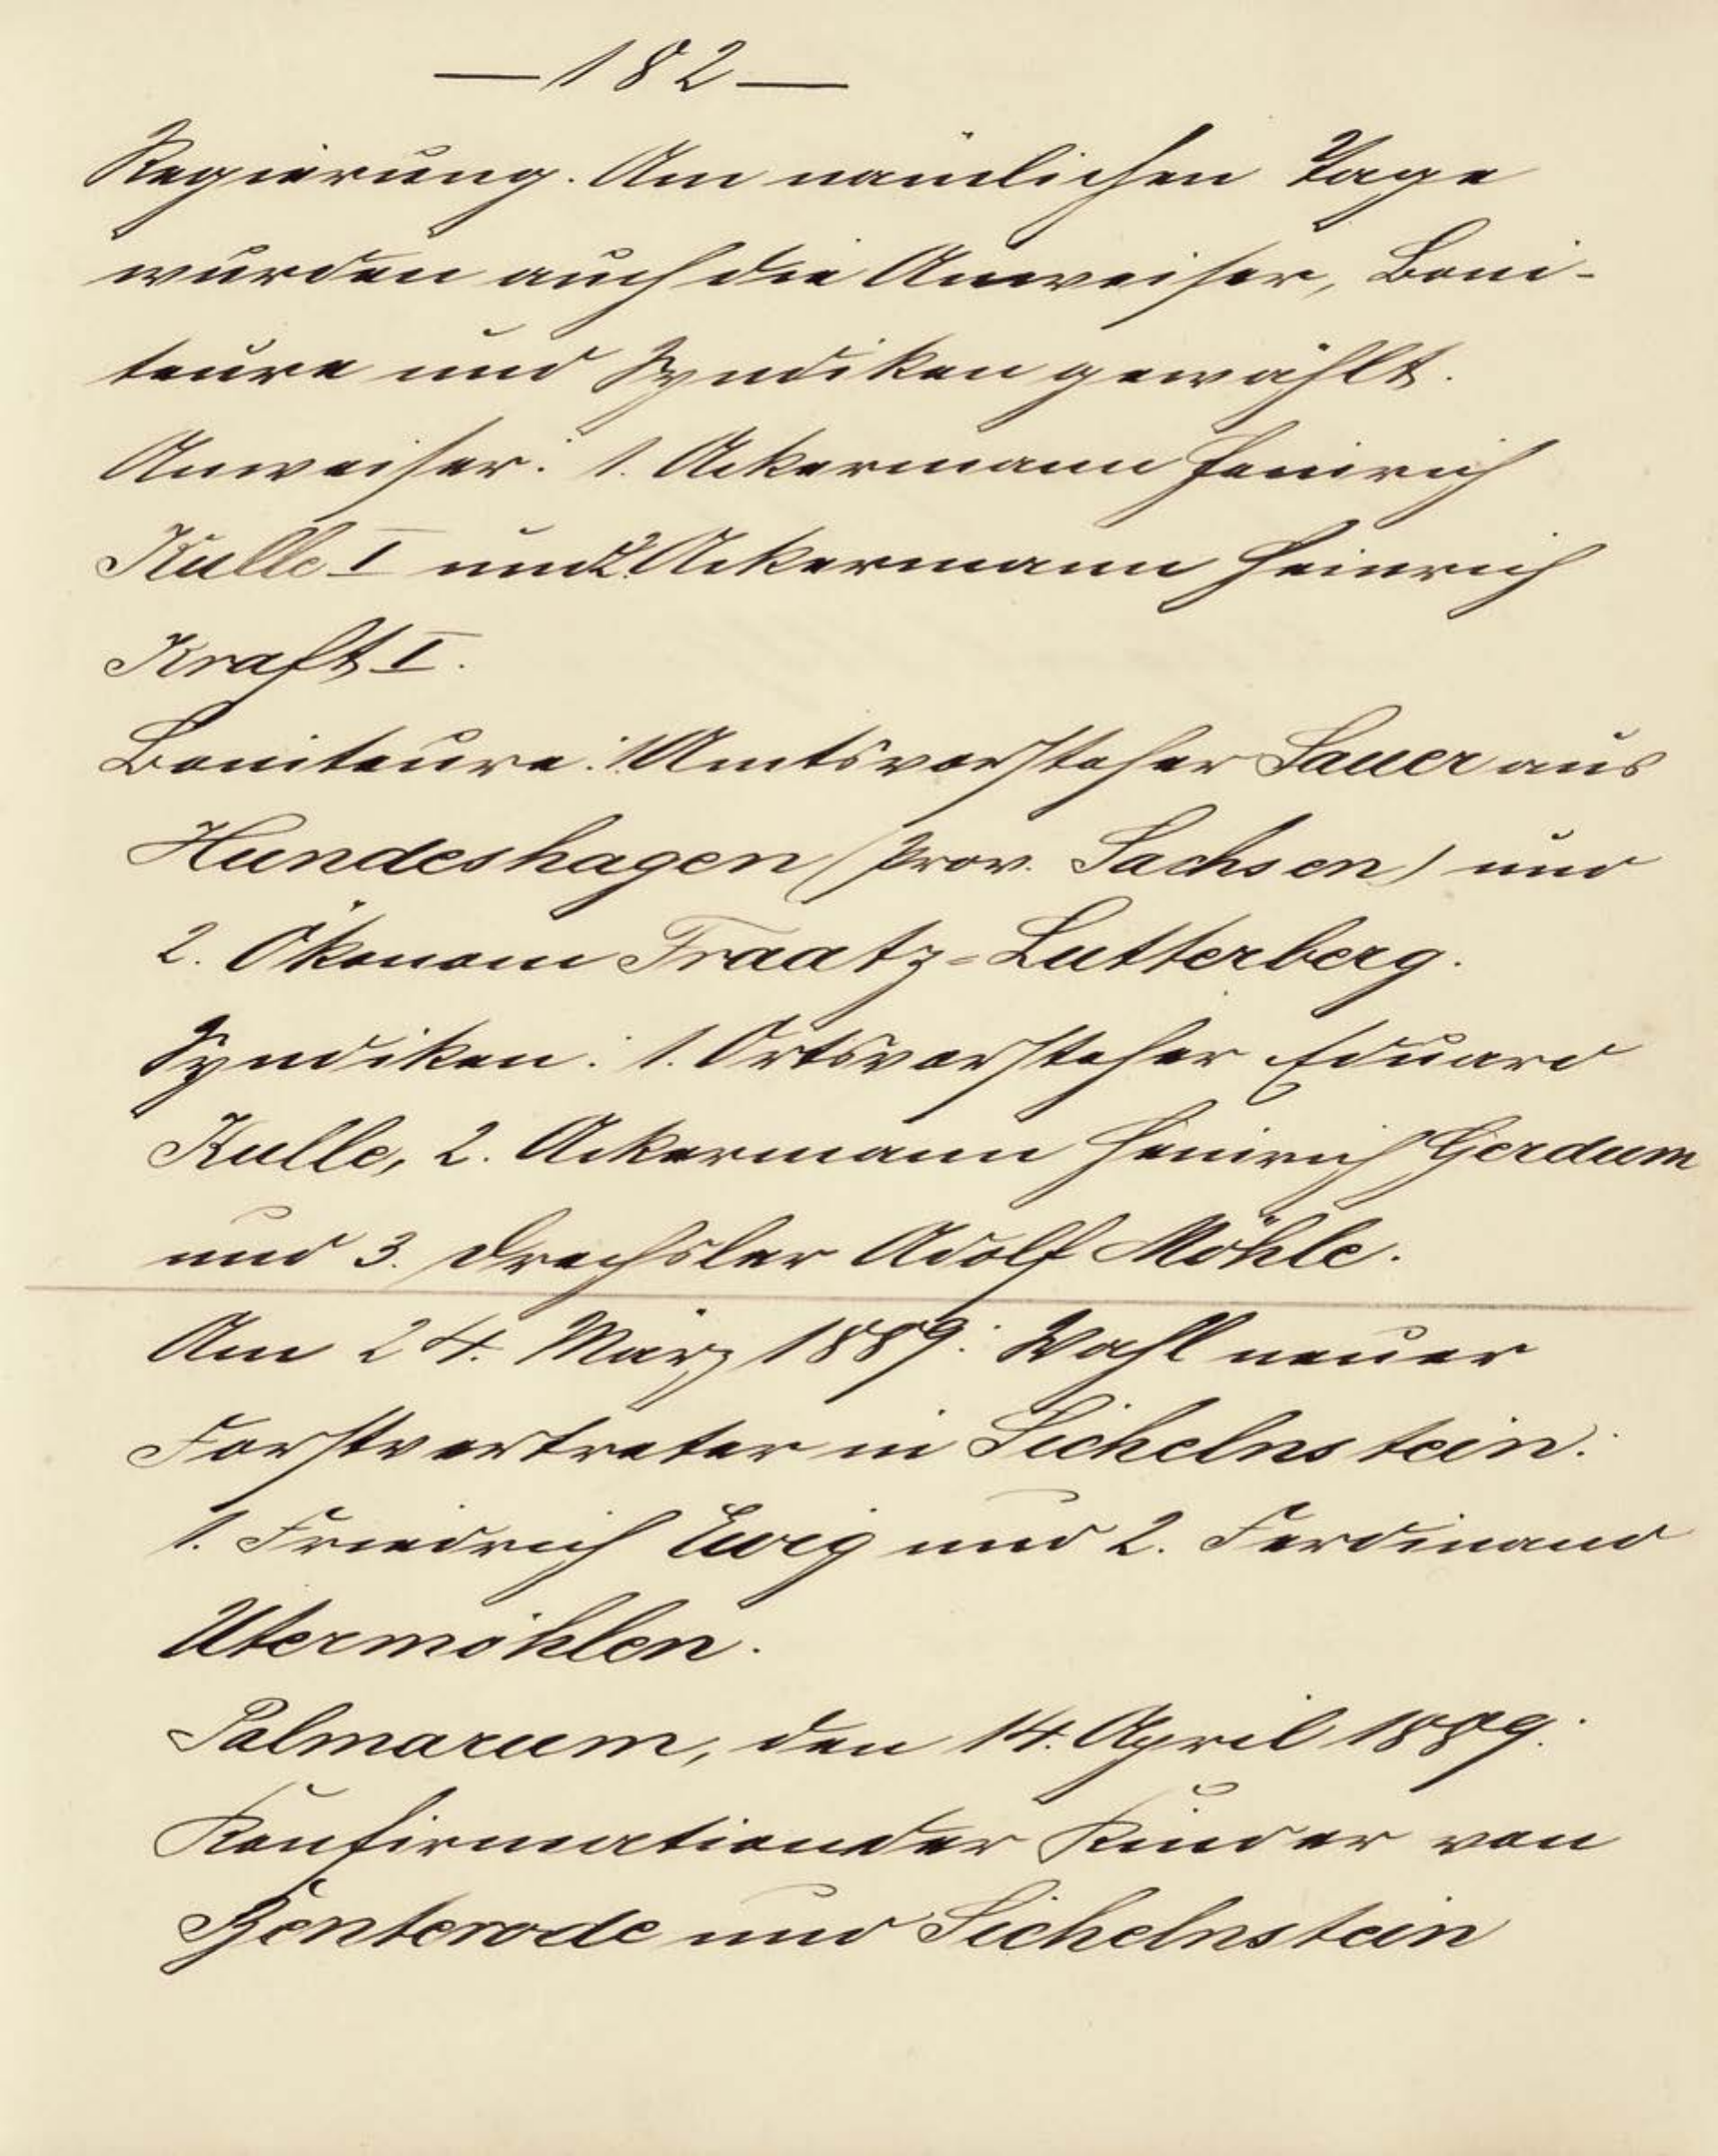 — 182 —
Regierung. Am nämlichen Tage
wurden auch die Anweiser, Boni-
teure und Syndiken gewählt.
Anweiser: 1. Ackermann Heinrich
Kulle I und 2. Ackermann Heinrich
Kraft I.
Boniteure: 1. Amtsvorsteher Sauer aus
Hundeshagen (Prov. Sachsen) und
2. Ökonom Fraatz-Lutterberg.
Syndiken: 1. Ortsvorsteher Eduard
Kulle, 2. Ackermann Heinrich Gerdum
und 3. Drechsler Adolf Möhle.
Am 24. März 1889: Wahl neuer
Forstvertreter in Sichelnstein:
1. Friedrich Ewig und 2. Ferdinand
Utermöhlen.
Palmarum, den 14. April 1889:
Konfirmation der Kinder von
Benterode und Sichelnstein